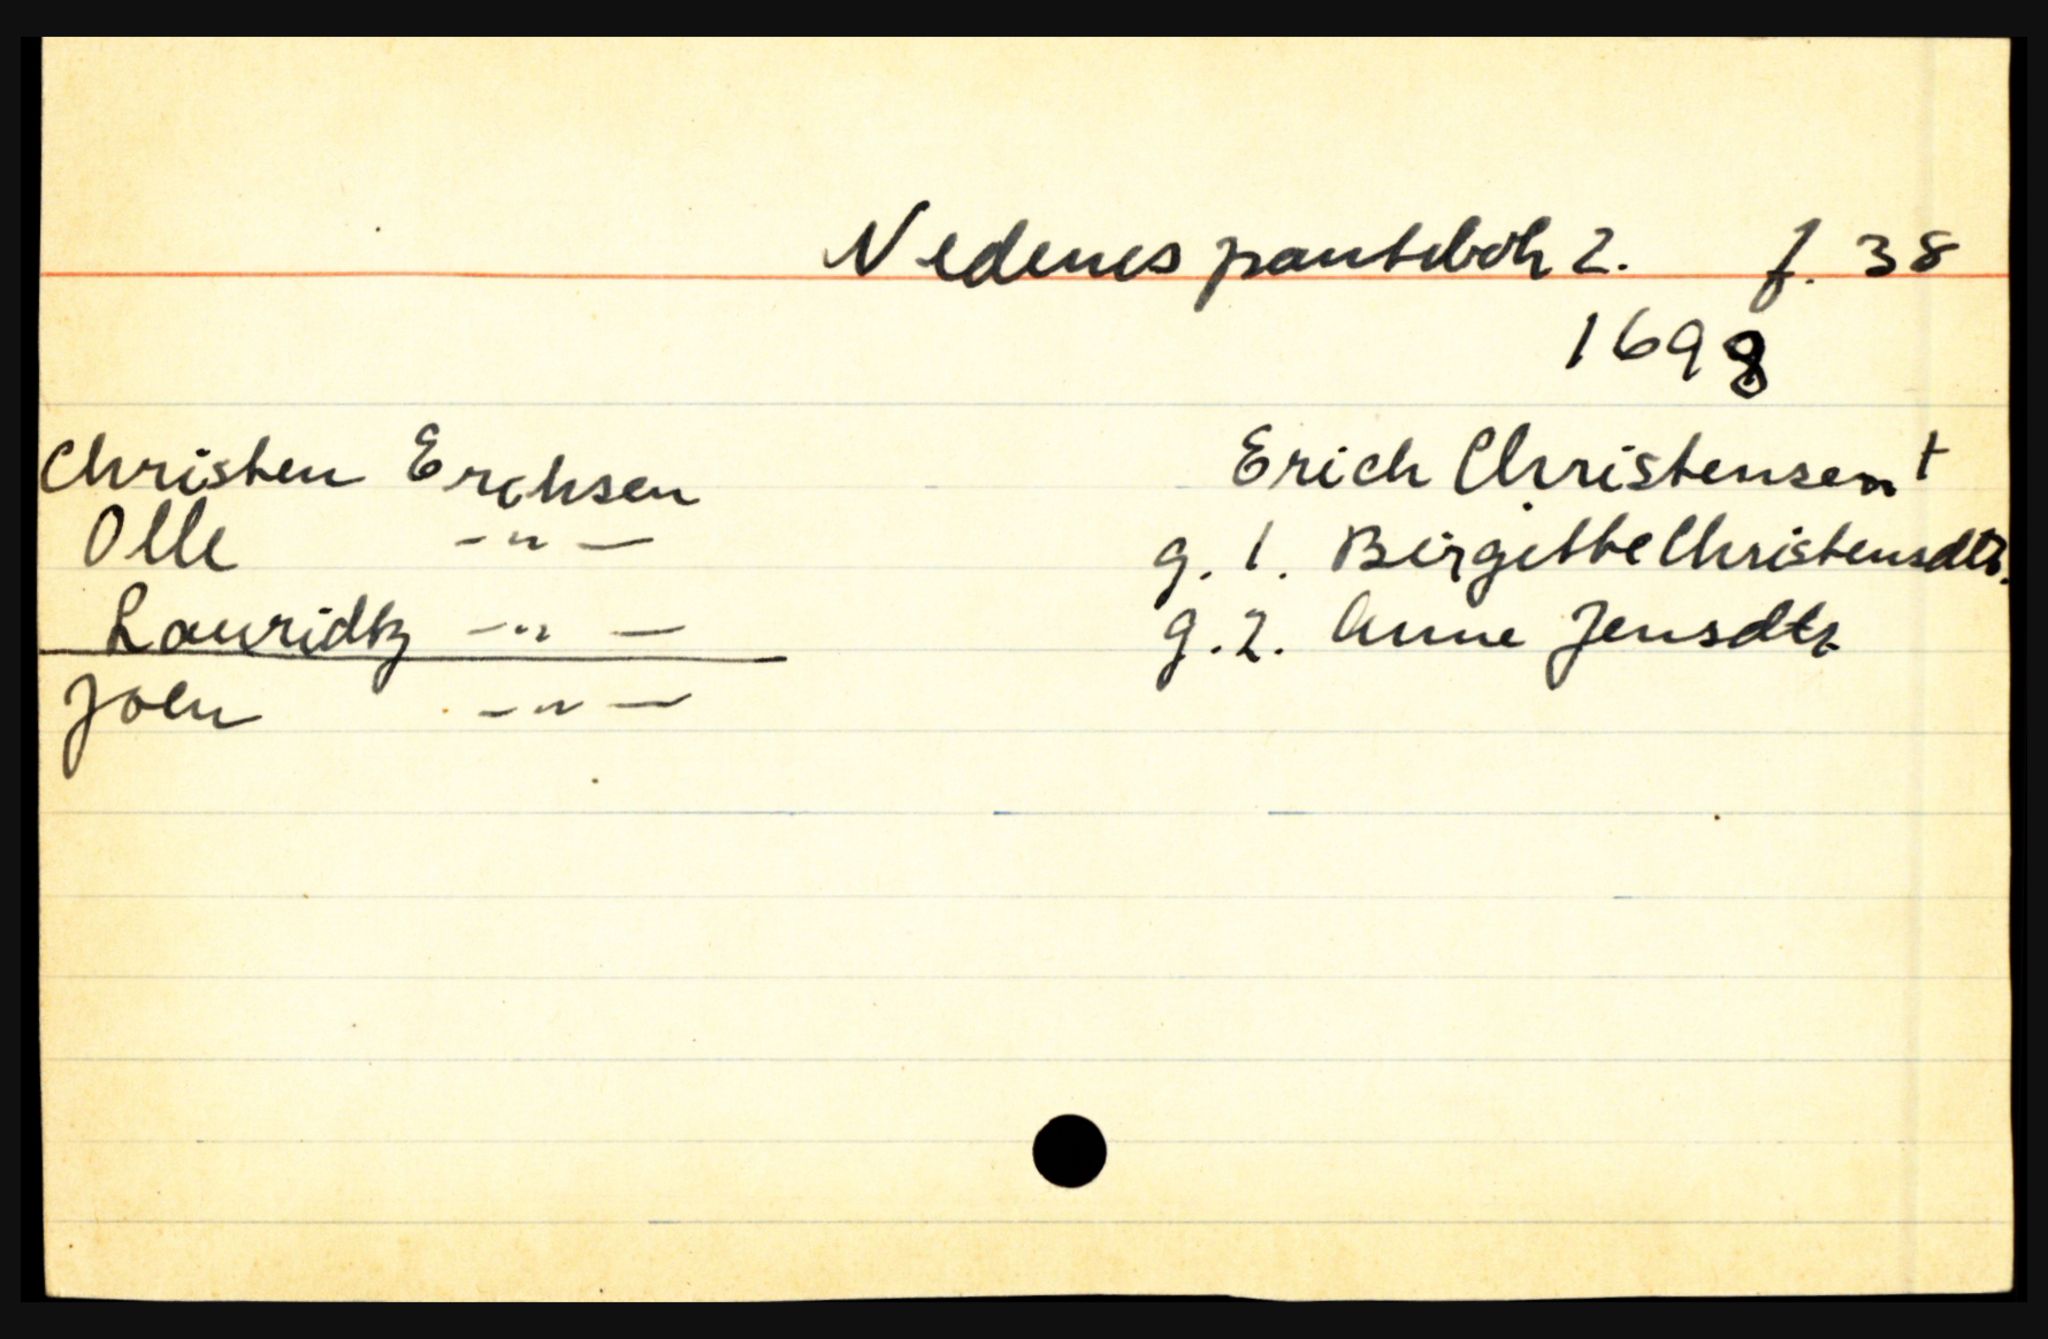 Nedenes pantebok 2. f. 38
1698
Christen Erichsen Erich Christensen †
Olle -"- g. 1. Birgitte Christensdtr.
Lauridtz -"- g. 2. Anne Jensdtr
Joen -"-